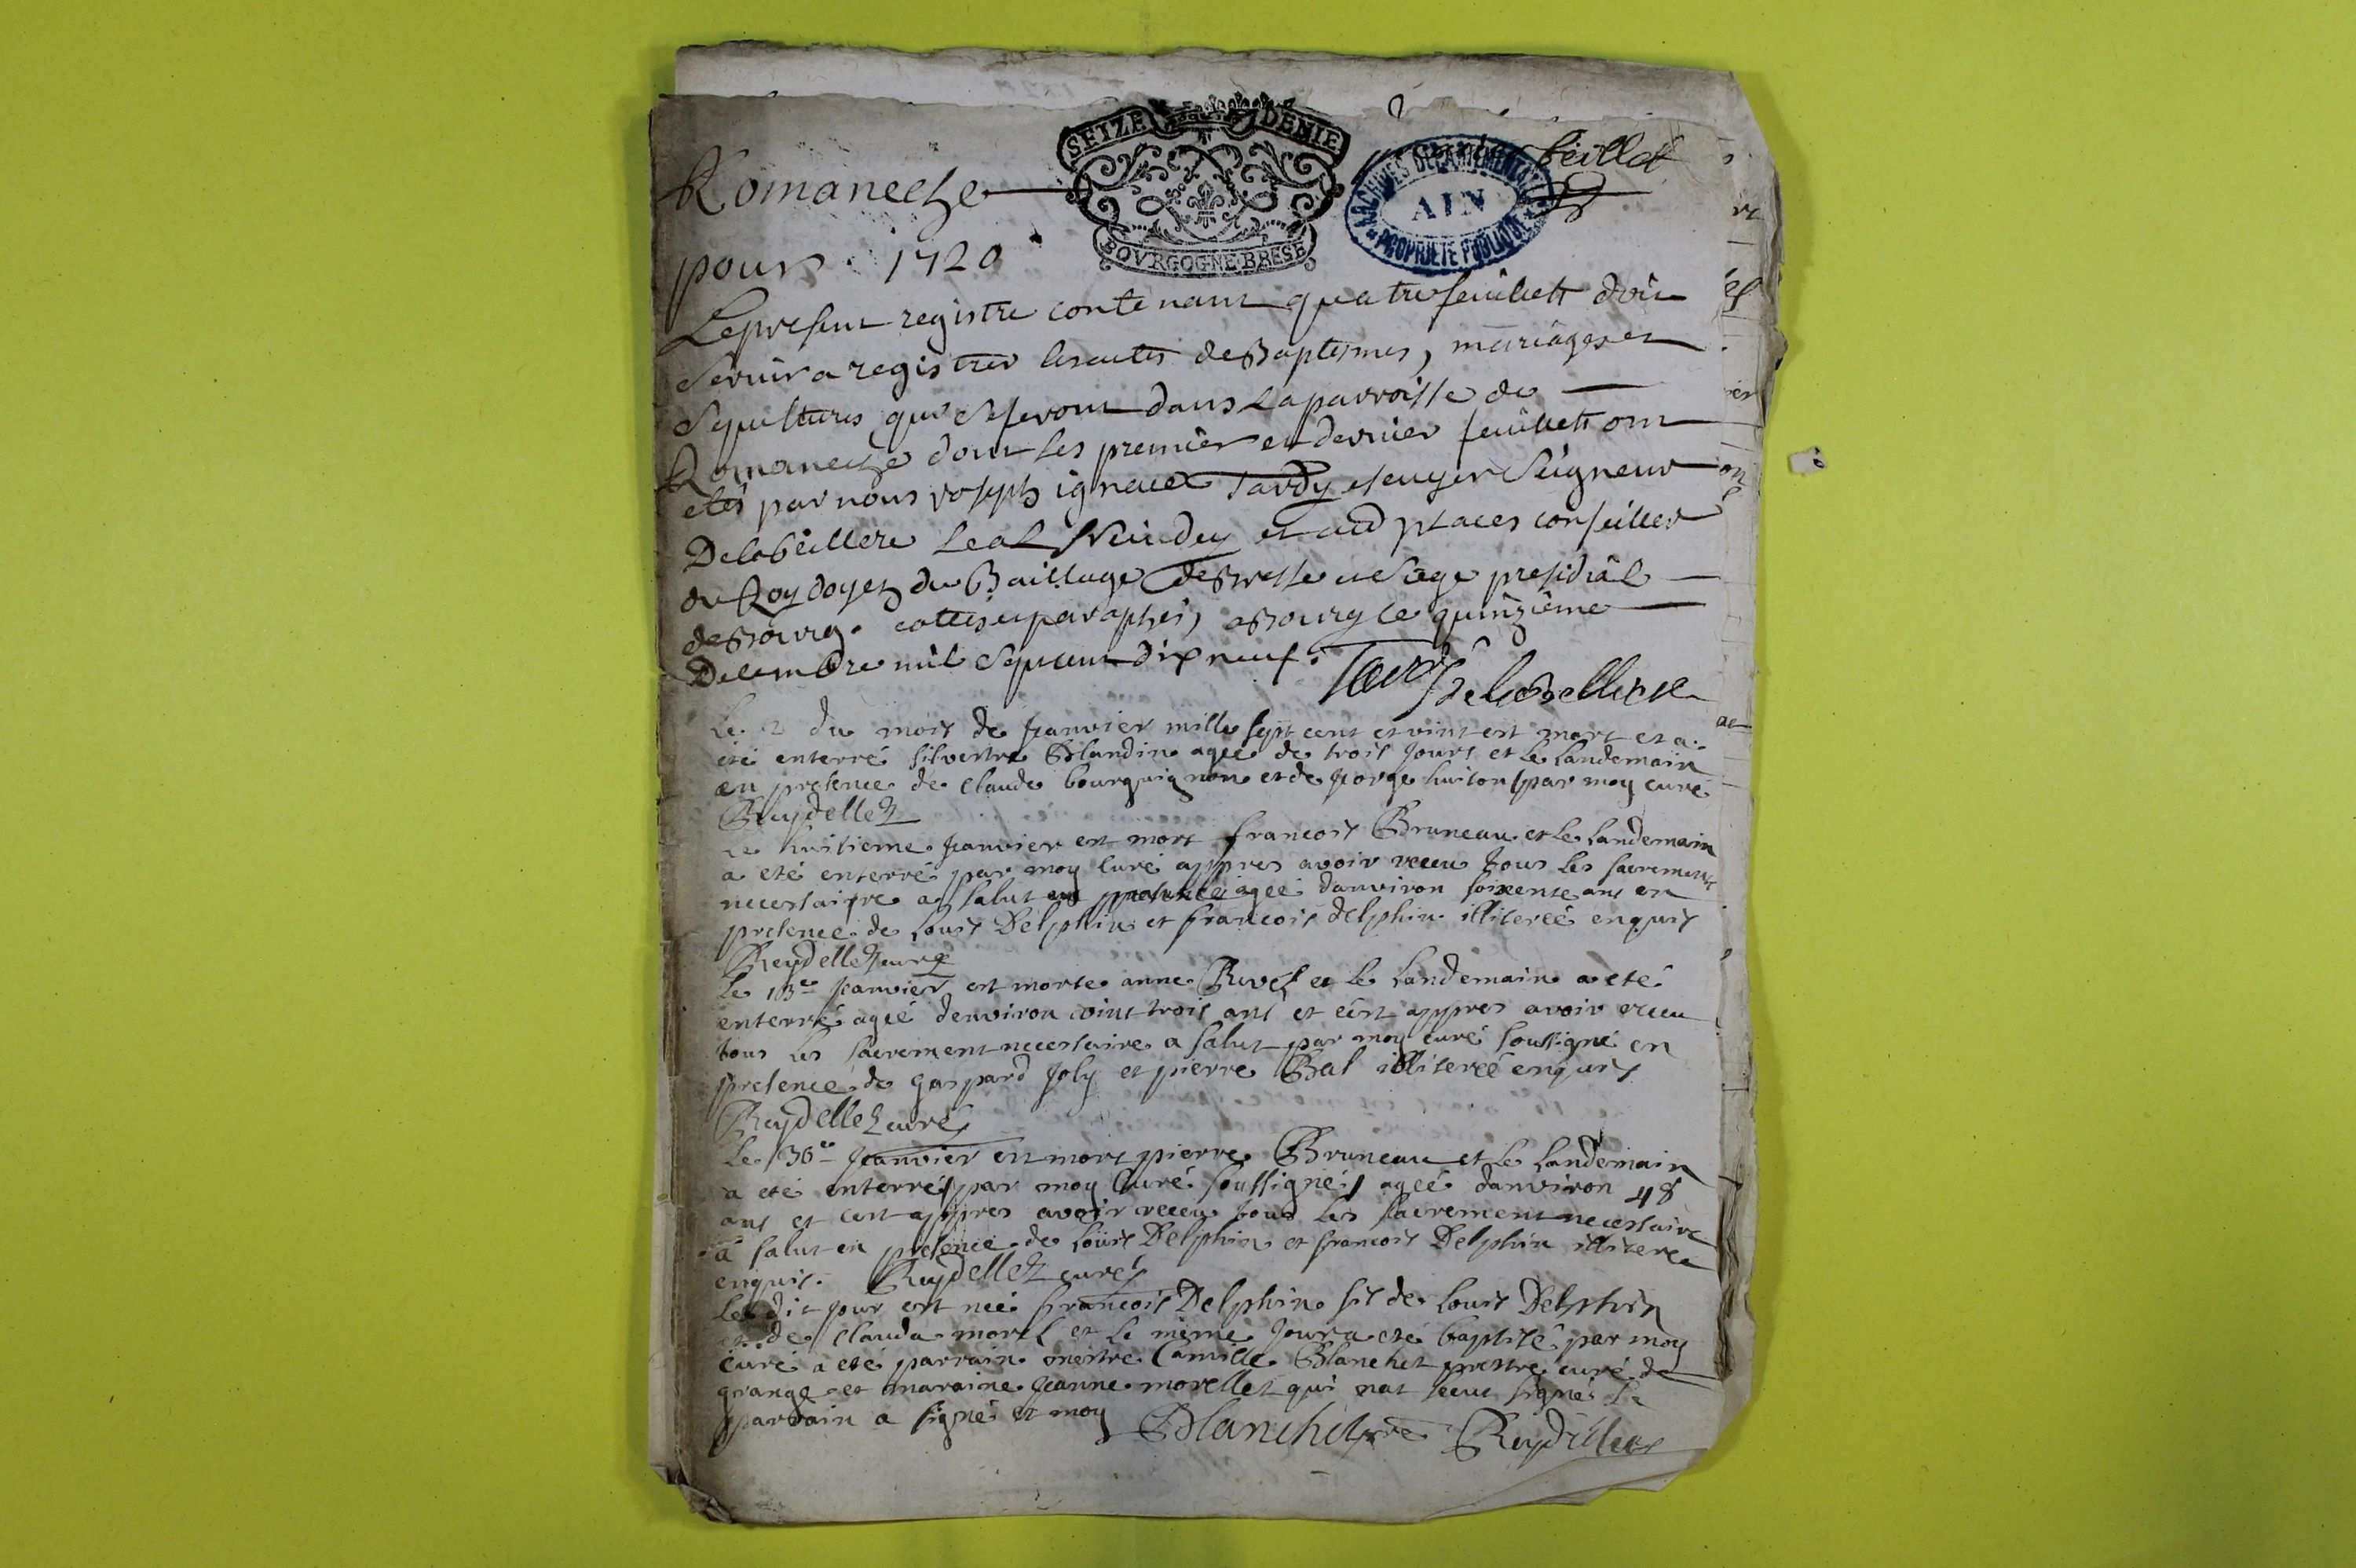 SEIZE DENIE
feüillet
ARCHIVES DEPARTEMENTALES
AIN
PROPRIETE PUBLIQUE
BOVRGOGNE·BRESE
Romaneche
pour 1720
Le present registre contenant quatre feüillett doit
servir a registrer les actes de Baptesmes, mariages et
Sepultures qui se feront dans la parroisse de
Romaneche dont les premier et dernier feüillett ont
etés par nous Joseph ignace Tardy escuyer Seigneur
Delabeillere et places conseiller
du Roy doyen du Bailliage de Bresse et Siege presidial
de Bourg. cottés et paraphés, a Bourg le quinzième
Decembre mil sept cent dix neuf.
Tardy De la Belliere
Le 2 du mois de Janvier mille sept cent et vint est mort et a
été enterré silvestre Blandin ageé de trois jours et le landemain
en presence de Claude bourguignon et de jorge huiton par moy curé
Reydellet
Le huitieme Janvier est mort francois Bruneau et le landemain
a eté enterré par moy curé appres avoir receu tous les sacrement
necessaire a salut ageé danviron soixente ans en
presence de Louis Delphin et francois delphin illitereé enquis
Reydellet curé
Le 13e Janvier est morte anne et le landemain a eté
enterré ageé denviron vint trois ans et cest appres avoir receu
tous les sacrement necessaire a salut par moy curé soussigné en
presence de gaspard Joly et pierre Bal illitereé enquis
Reydellet curé
Le 30e Janvier est mort pierre Bruneau et le landemain
a eté enterré par moy Curé soussigné ageé danviron 48
ans et cest appres avoir receu tous les sacrement necessaire
a salut en presence de Loüis Delphin et francois Delphin illitereé
enquis. Reydellet curé
Le dit jour est neé francois Delphin fis de Louis Delphin
et de Clauda morel et le mème jour a eté baptisé par moy
curé a eté parrain mestre Camille Blanchet prestre curé de
grange et maraine Jeanne morellet qui nat sceut signé le
parrain a signé et moy Blanchet pre Reydellet